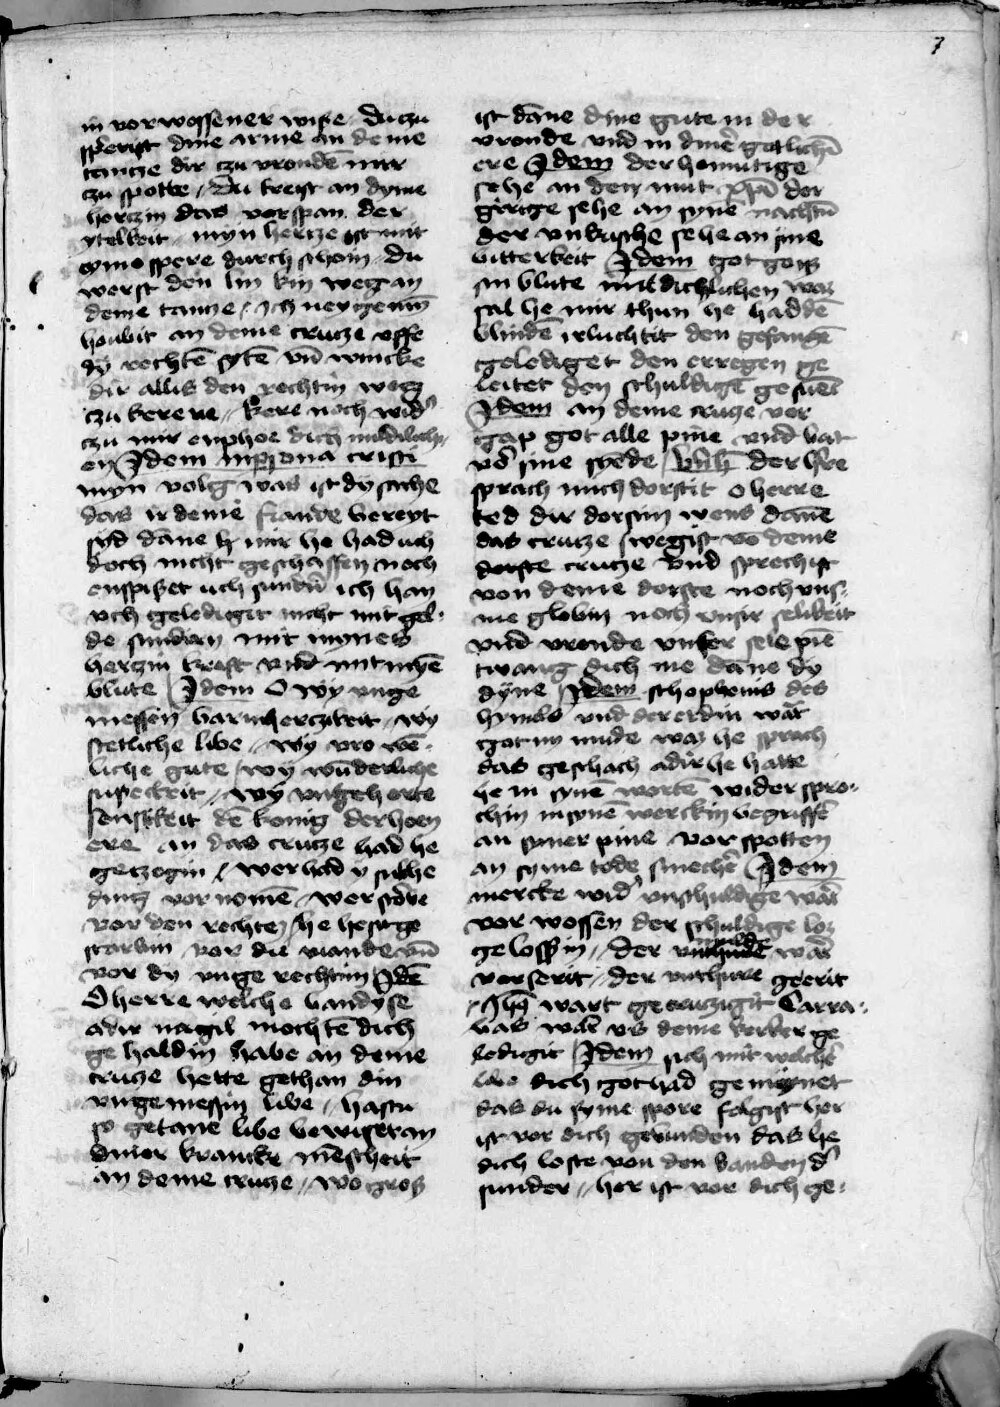 7
in vorwossener wise du czu
sperist dine arme an deme
tantze dir czu vronde mir
czu spotte / du treist an dyme
hertzin das vorspan der
ytelkeit myn hertze ist mit
eyme spere durch schoin du
werst den lin kin weg an
deme tantze / ich neyge min
houbit an deme crucze uffe
dy rechtē sytē vn̄ wincke
dir allis den rechtin weg
czu kerene / kere noch wid'
czu mir enphoe dich mildiclich
en Idem in persona cristi
myn volg was ist dy sache
das ir deme fiande bereyt
syd dāne mir he had uch
doch nicht geschaffen noch
enspiset uch sund' ich han
vch gelediget nicht mit gol
de sundirn mit mynes
hertzin kraft vnd mit mynē
blute Idem O wy unge
messin barmherczikeit wy
stetliche libe / wy vro we
liche gute / wy wūderliche
susseckeit / wy ungehorte
senftikeit dē konig der hoen
ere an das crucze had he
getzogin / wer had y sulche
ding vornomē / wer storbe
vor den rechten / he
starbin vor die viande vn̄
vor dy unge rechtin Idē
O herre welche bandyse
adir nagil mochtē dich
gehaldin habe an deme
crucze hette gethan din
ungemessin libe / hastu
so getane libe bewiset an
diner krancke mēscheit
an deme crucze / wo gros
ist dāne dine gute in der
vronde vnd in dinē gotlichē
ere Idem der homutige
sehe an den mut xpī der
girige sehe an syne
der unkusche sehe an sine
bitterkeit Idem got gous
sin blute mildichlichen waz
sal he mir thun he had dē
blindē irluchtit den gefangē
gelediget den erregen ge
leitet den schuldigē gesuēt
Idem an deme crucze vor
gap got alle pine vnd bat
vor sine der h're
sprach mich dorstit o herre
ted dir dorstin wens dāne
das crucze / swegist vō deme
dorste crucze vnd sprechist
von deme dorste noch uns
me globin noch unsir selikeit
vnd vronde unser sele pin
twang dich me dāne dy
dyne Idem schophenis des
hymels vnd der erdin wāt
got ny mude waz he sprach
das geschach adir he hatte
ye in syne wortē widerspro
chin in synē werckin begriffē
an syner pine vorspotten
an syme tode smechē Idem
mercke wid' unschuldige wāt
vorwossen der schuldige loz
gelossin / der unschulde wāt
vorserit / der geerit
/ Ihc wart gecrucziget Barra
bas wāt us deme kerker ge
lediget Idem sich mit welchē
libe dich got had gemynet
das du syme spore folgist her
ist vor dich gebunden das he
dich loste von den banden d'
sunder / her ist vor dich ge